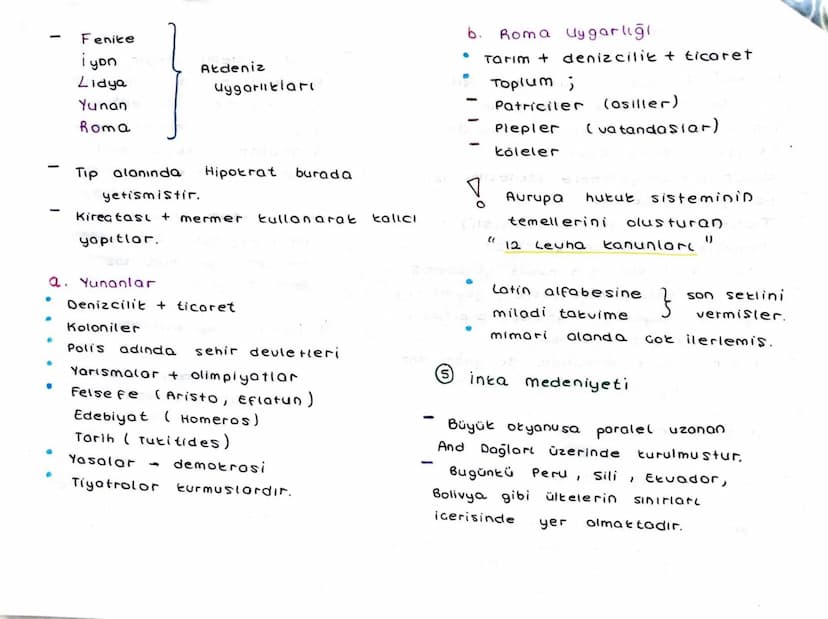 - Fenike
İyon
Lidya
Yunan
Roma
Akdeniz
Uygarlıkları
- Tıp alanında Hipokrat burada
yetismistir.
- Kirectası + mermer kullanarak kalıcı
yapıtlar.
a. Yunanlar
• Denizcilik + ticaret
• Koloniler
• Polis adında sehir devletleri
• Yarısmalar + olimpiyatlar
• Felsefe (Aristo, Eflatun)
Edebiyat (Homeros)
Tarih (Tukitides)
• Yasalar → demokrasi
• Tiyatrolar kurmuslardır.
b. Roma Uygarlığı
• Tarım + denizcilik + ticaret
• Toplum ;
- Patriciler (asiller)
- Plepler (vatandaslar)
- köleler
! Avrupa hukuk sisteminin
temellerini olusturan
" 12 Levha kanunları "
• Latin alfabesine } son seklini
miladi takvime vermisler.
• mimari alanda cok ilerlemis.
⑤ inka medeniyeti
- Büyük okyanusa paralel uzanan
And Dağları üzerinde kurulmustur.
- Bugünkü Peru, Sili, Ekvador,
Bolivya gibi ülkelerin sınırları
icerisinde yer almaktadır.